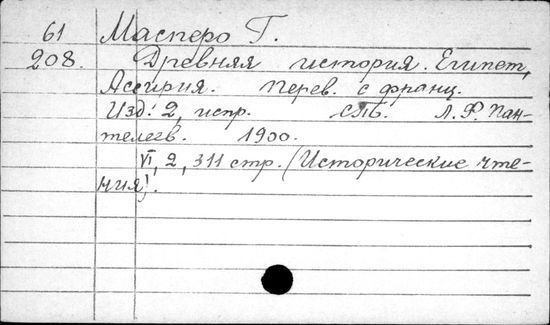 61 Масперо Г.
208. Древняя история. Египет,
Ассирия. Перев. с франц.
Изд. 2, испр. СПб. Л. Ф. Пан-
телеев. 1900.
VI, 2, 311 стр. (Исторические чте-
ния).